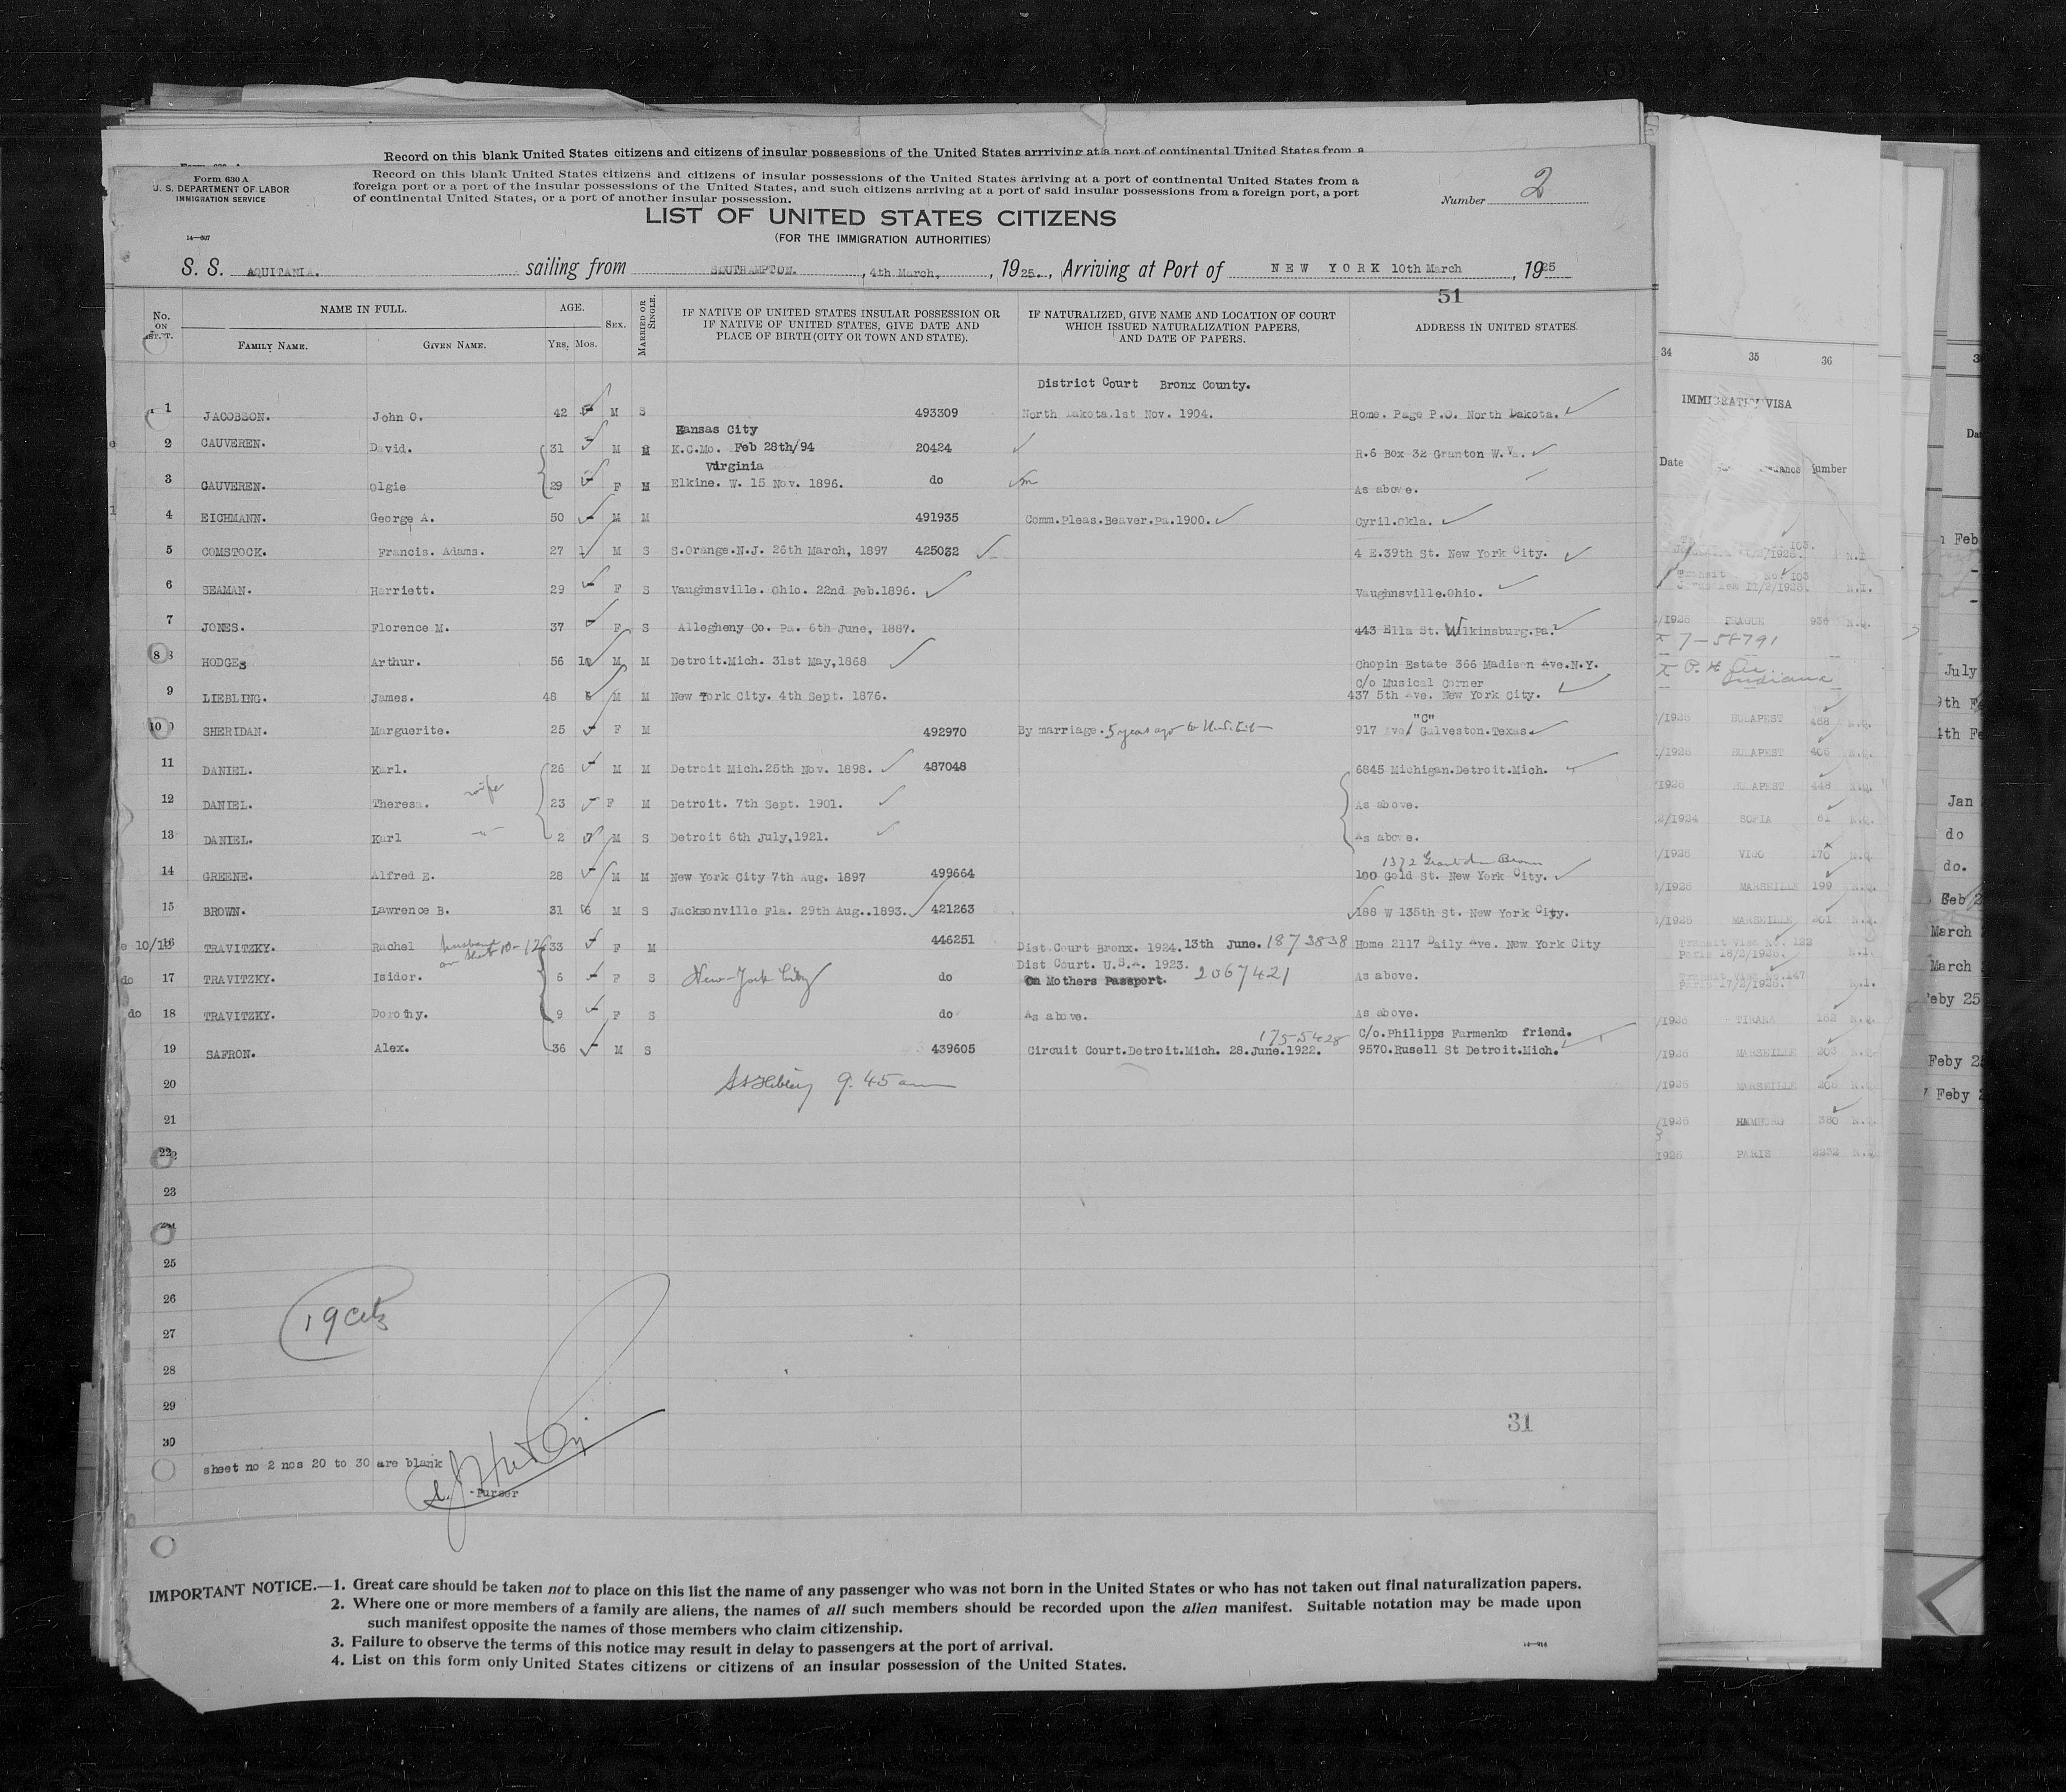 Record on this blank United States citizens and citizens of insular possessions of the United States arrriving at a port of continental United States from a
Form 630 A
U. S. DEPARTMENT OF LABOR
IMMIGRATION SERVICE
14—607
Record on this blank United States citizens and citizens of insular possessions of the United States arriving at a port of continental United States from a
foreign port or a port of the insular possessions of the United States, and such citizens arriving at a port of said insular possessions from a foreign port, a port
of continental United States, or a port of another insular possession.
Number 2
LIST OF UNITED STATES CITIZENS
(FOR THE IMMIGRATION AUTHORITIES)
S. S. AQUITANIA. sailing from SOUTHAMPTON. , 4th March, , 1925. , Arriving at Port of NEW YORK 10th March , 1925
51
No. ON LIST. NAME IN FULL. AGE. SEX. MARRIED OR SINGLE. IF NATIVE OF UNITED STATES INSULAR POSSESSION OR IF NATIVE OF UNITED STATES, GIVE DATE AND PLACE OF BIRTH (CITY OR TOWN AND STATE). IF NATURALIZED, GIVE NAME AND LOCATION OF COURT WHICH ISSUED NATURALIZATION PAPERS, AND DATE OF PAPERS. ADDRESS IN UNITED STATES.
FAMILY NAME. GIVEN NAME. YRS. MOS.
District Court Bronx County.
1 JACOBSON. John O. 42 M S 493309 North Dakota.1st Nov. 1904. Home. Page P.O. North Dakota.
Kansas City
2 CAUVEREN. David. 31 M M K.C.Mo. Feb 28th/94 20424 R.6 Box 32 Granton W.Va.
Virginia
3 CAUVEREN. Olgie 29 F M Elkine. W. 15 Nov. 1896. do As above.
4 EICHMANN. George A. 50 M M 491935 Comm.Pleas.Beaver.Pa.1900. Cyril.Okla.
5 COMSTOCK. Francis. Adams. 27 1 M S S.Orange.N.J. 26th March, 1897 425032 4 E.39th St. New York City.
6 SEAMAN. Harriett. 29 F S Vaughnsville. Ohio. 22nd Feb.1896. Vaughnsville.Ohio.
7 JONES. Florence M. 37 F S Allegheny Co. Pa. 6th June, 1887. 443 Ella St. Wilkinsburg.Pa.
8 HODGEs Arthur. 56 10 M M Detroit.Mich. 31st May,1868 Chopin Estate 366 Madison Ave.N.Y.
C/o Musical Corner
9 LIEBLING. James. 48 6 M M New York City. 4th Sept. 1876. 437 5th Ave. New York City.
"C"
10 SHERIDAN. Marguerite. 25 F M 492970 By marriage. 5 years ago to 917 Ave Galveston.Texas.
11 DANIEL. Karl. 26 M M Detroit Mich.25th Nov. 1898. 487048 6845 Michigan.Detroit.Mich.
12 DANIEL. Theresa. wife 23 F M Detroit. 7th Sept. 1901. As above.
13 DANIEL. Karl 2 7 M S Detroit 6th July,1921. As above.
1372 Bronx
14 GREENE. Alfred E. 28 M M New York City 7th Aug. 1897 499664 100 Gold St. New York City.
15 BROWN. Lawrence B. 31 6 M S Jacksonville Fla. 29th Aug..1893. 421263 188 W 135th St. New York City.
16 TRAVITZKY. Rachel husband on sheet 10-12 33 F M 446251 Dist Court Bronx. 1924. 13th June. 1873838 Home 2117 Daily Ave. New York City
Dist Court. U.S.A. 1923.
do 17 TRAVITZKY. Isidor. 6 F S New-York City do On Mothers Passport. 2067421 As above.
do 18 TRAVITZKY. Dorothy. 9 F S do As above. As above.
1755428 C/o.Philipps Farmenko friend.
19 SAFRON. Alex. 36 M S 439605 Circuit Court.Detroit.Mich. 28.June.1922. 9570.Rusell St Detroit.Mich.
20 9.45 am
21
22
23
24
25
26
27
28
29
30
19 Cits
31
sheet no 2 nos 20 to 30 are blank
Purser
IMPORTANT NOTICE.—1. Great care should be taken not to place on this list the name of any passenger who was not born in the United States or who has not taken out final naturalization papers.
2. Where one or more members of a family are aliens, the names of all such members should be recorded upon the alien manifest. Suitable notation may be made upon
such manifest opposite the names of those members who claim citizenship.
3. Failure to observe the terms of this notice may result in delay to passengers at the port of arrival.
4. List on this form only United States citizens or citizens of an insular possession of the United States.
34 35 36
IMMIGRATION VISA
Date Number
PRAGUE 936 N.Q.
7-58791
Indiana
BUDAPEST 468 N.Q.
BUDAPEST 406 N.Q.
BUDAPEST 448 N.Q.
SOFIA 61 N.Q.
VIGO 170 N.Q.
MARSEILLE 199 N.Q.
MARSEILLE 201 N.Q.
Transit Visa No. 122
Paris 18/2/1925. N.I.
TIRANA 162 N.Q.
MARSEILLE 203 N.Q.
MARSEILLE 206 N.Q.
HAMBURG 380 N.Q.
PARIS 2232 N.Q.
Feb
July
Jan
do
do.
Feb 2
March
March
Feby 25
Feby 25
Feby 2